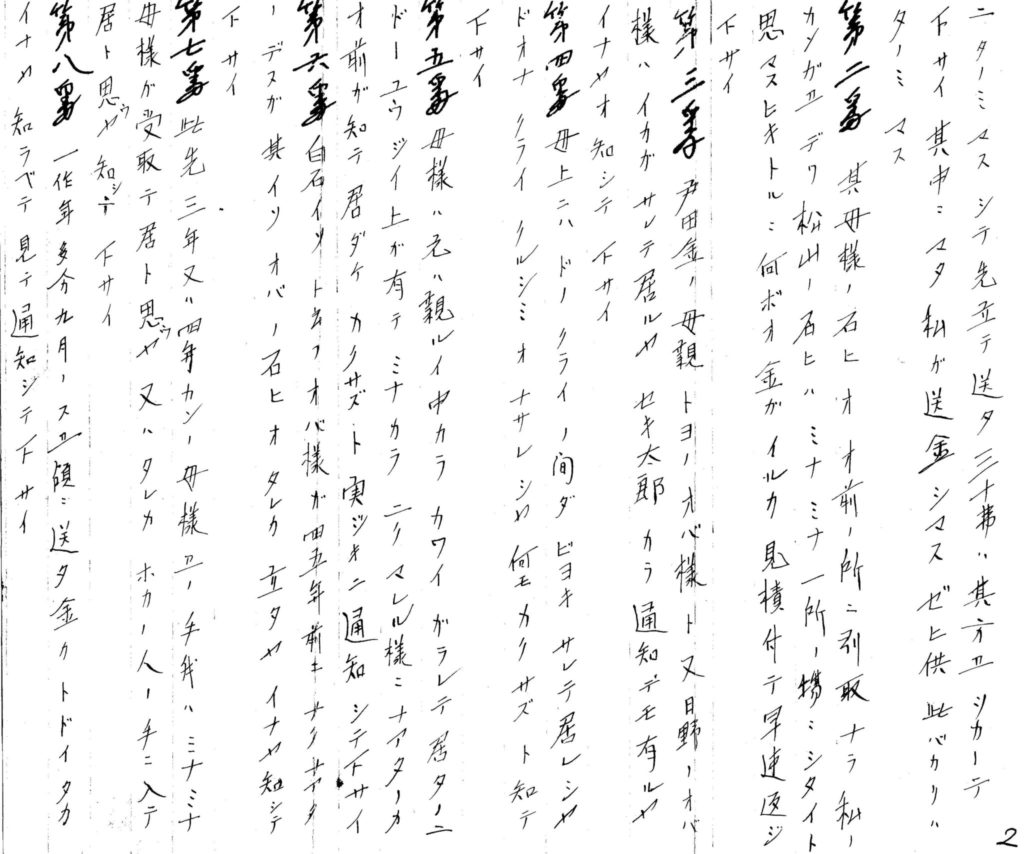 ニターミマス シテ先立テ送タ三十弗ハ其方ヱ シカーテ
下サイ 其中ニマタ私ガ送金シマス ゼヒ供 此バカリハ
ターミマス
第二番 其母様ノ石ヒオ オ前ノ所ニ引取ナラ 私ノ
カンガヱデワ 松山ノ石ヒハ ミナミナ一所ノ場ニシタイト
思マス ヒキトルニ何ボオ金ガイルカ 見積付テ早速返ジ
下サイ
第三番 戸田金ノ母親 トヨノオバ様ト 又日野ノオバ
様ハ イカガサレテ居ルヤ セキ太郎カラ通知デモ有ルヤ
イナヤオ知シテ下サイ
第四番 母上ニハ ドノクライノ間ダ ビヨキサレテ居レシヤ
ドオナクライクルシミオナサレシヤ 何モカクサズト知テ
下サイ
第五番 母様ハ元ハ親ルイ中カラ カワイガラレテ居タノニ
ドーユウジイ上ガ有テ ミナカラニクマレル様ニナアターカ
オ前ガ知テ居ダケ カクサズト実ジキニ通知シテ下サイ
第六番 白石イットオバ様ガ四五年前キナクナアタ
ーデスガ 其イツオバノ石ヒオタレカ立タヤ イナヤ知シテ
下サイ
第七番 此先三年又ハ四年カンノ母様ヱノ手紙ハ ミナミナ
母様ガ受取テ居ト思ウヤ 又ハタレカホカノ人ノ手ニ入テ
居ト思ウヤ 知シテ下サイ
第八番 一作年多分九月ノスヱ頃ニ送タ金ワ トドイタカ
イナヤ 知ラベテ見テ通知シテ下サイ
2